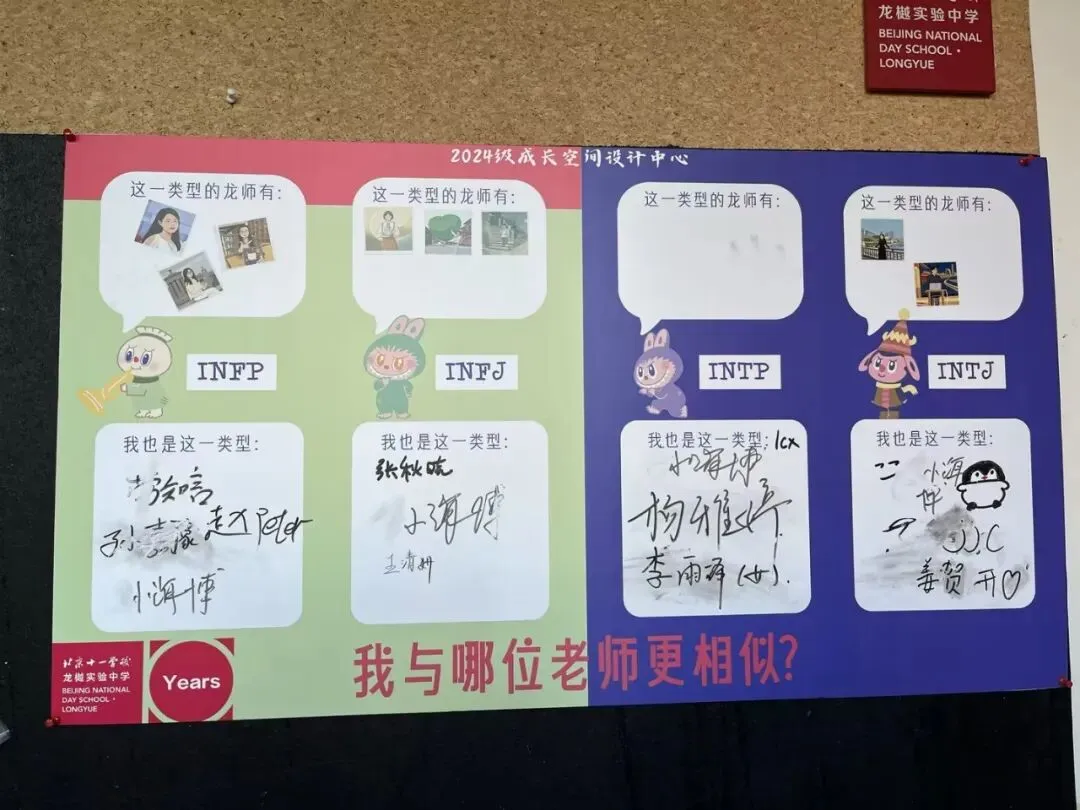 龙樾实验中学
BEIJING NATIONAL
DAY SCHOOL·
LONGYUE
2024级成长空间设计中心
这一类型的龙师有:
这一类型的龙师有:
这一类型的龙师有:
这一类型的龙师有:
INFP
INFJ
INTP
INTJ
我也是这一类型:
小海博
我也是这一类型:
张秋皖
小海博
王清妍
我也是这一类型:
lcx
小海博
杨雅婷.
李雨泽(女).
我也是这一类型:
小海
博
姜贺开♡
我与哪位老师更相似?
北京十一学校
龙樾实验中学
BEIJING NATIONAL
DAY SCHOOL·
LONGYUE
Years